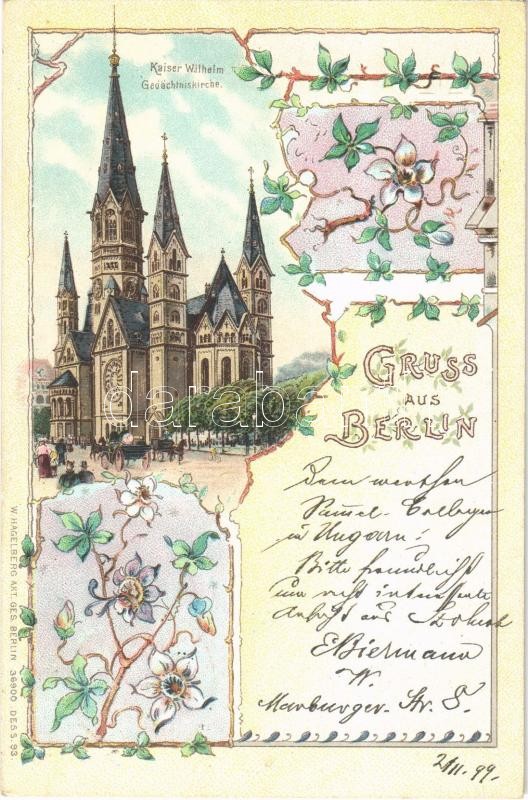 Kaiser Wilhelm
Gedächtniskirche.
GRUSS
AUS
BERLIN
Dem werthen
Sammel-Collegen
in Ungarn!
Bitte freundlichst
um recht interessante
Ansicht aus Szolnok
E Biermann
W.
Marburger-Str. 8.
2/11. 99.
W. HAGELBERG AKT. GES. BERLIN 36900 DESS. 93.
darabanth